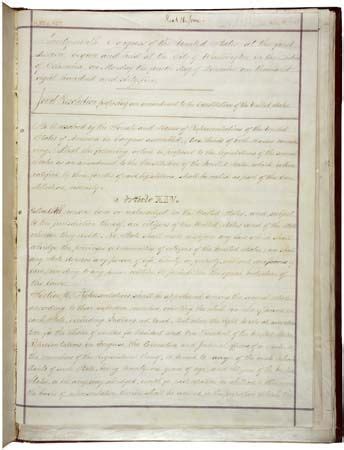 Thirty-ninth Congress of the United States, at the first
session, begun and held at the City of Washington, in the District
of Columbia, on Monday the fourth day of December, one thousand
eight hundred and sixty-five
Joint Resolution proposing an amendment to the Constitution of the United States.
Be it resolved by the Senate and House of Representatives of the United
States of America in Congress assembled, two thirds of both Houses
That the following article be proposed to the legislatures of the several
States as an amendment to the Constitution of the United States, which when
ratified by three fourths of said legislatures shall be valid as part of the Con-
stitution, namely:
Article XIV.
born or naturalized in the United States, and subject
to the jurisdiction thereof, are citizens of the United States and of the State
wherein they reside. No State shall make or enforce any law which shall
abridge the privileges or immunities of citizens of the United States; nor shall
any State deprive any person of life, liberty, or property, without
law, nor deny to any person within its jurisdiction the equal protection of
the laws.
Representatives shall be apportioned among the several States
according to their respective numbers, counting the whole number of persons in
each State, excluding Indians not taxed. But when the right to vote at any elec-
tion for the choice of electors for President and Vice President of the United States,
Representatives in Congress, the Executive and Judicial officers of a State, or
the members of the Legislature thereof, is denied to any of the male inhabi-
tants of such State, being twenty-one years of age, and citizens of the United
States, or in any way abridged, except for participation in rebellion, or other
the basis of representation therein shall be reduced in the proportion which the